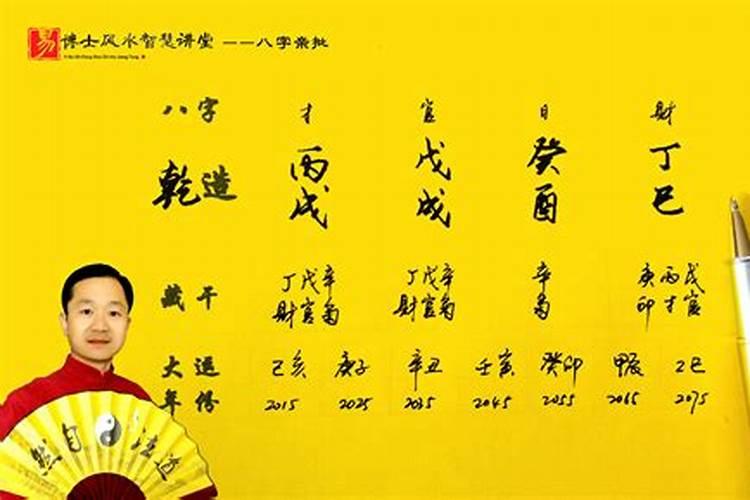 易 博士风水智慧讲堂 ——八字亲批
八字 才 官 日 財
乾造 丙 戊 癸 丁
戌 戌 酉 巳
藏干 丁戊辛 丁戊辛 辛 庚丙戊
財官 財官 印才官
大运 己亥 庚子 辛丑 壬寅 癸卯 甲辰 乙巳
年 2015 2025 2035 2045 2055 2065 2075
然自 法道